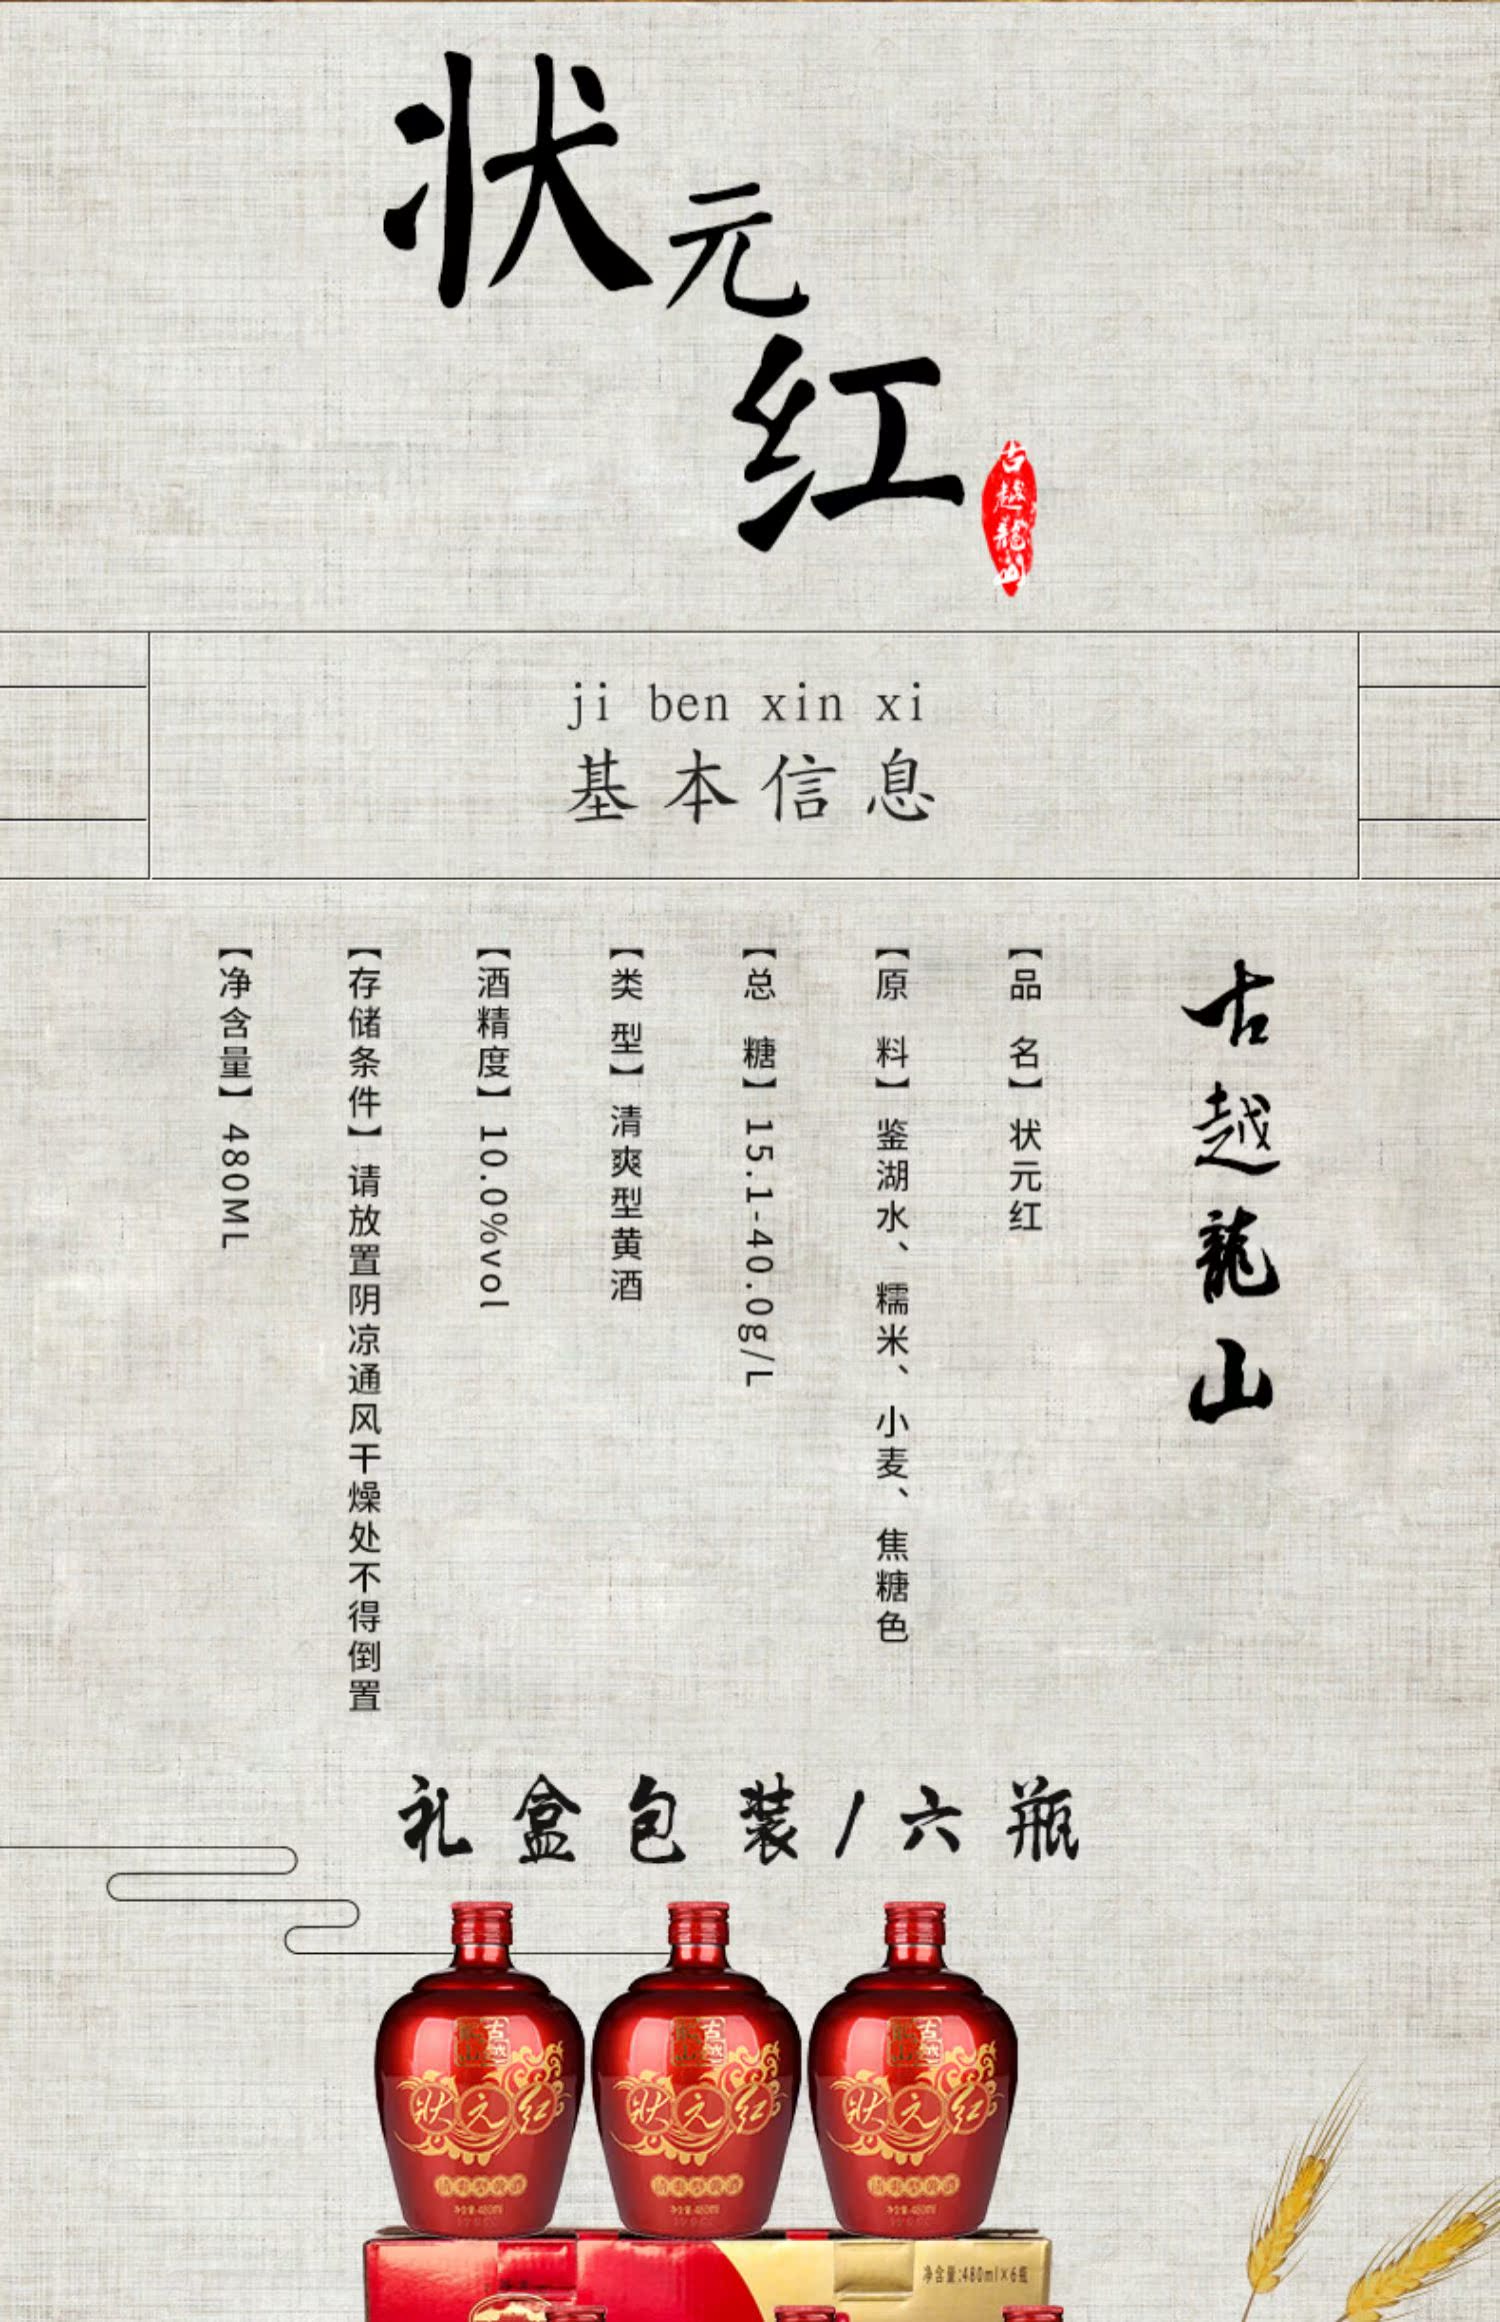 状元红
古越龍山
ji ben xin xi
基本信息
古越龍山
【品 名】状元红
【原 料】鉴湖水、糯米、小麦、焦糖色
【总 糖】15.1-40.0g/L
【类 型】清爽型黄酒
【酒精度】10.0%vol
【存储条件】请放置阴凉通风干燥处不得倒置
【净含量】480ML
礼盒包装/六瓶
古越龍山
状元红
清爽型黄酒
净含量:480ml
古越龍山
状元红
清爽型黄酒
净含量:480ml
古越龍山
状元红
清爽型黄酒
净含量:480ml
净含量:480ml×6瓶